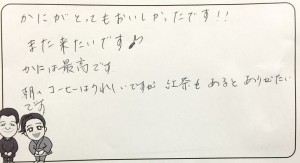 かにがとってもおいしかったです!!
また来たいです♪
かには最高です
朝のコーヒーはうれしいですが 紅茶も あると ありがたい
です